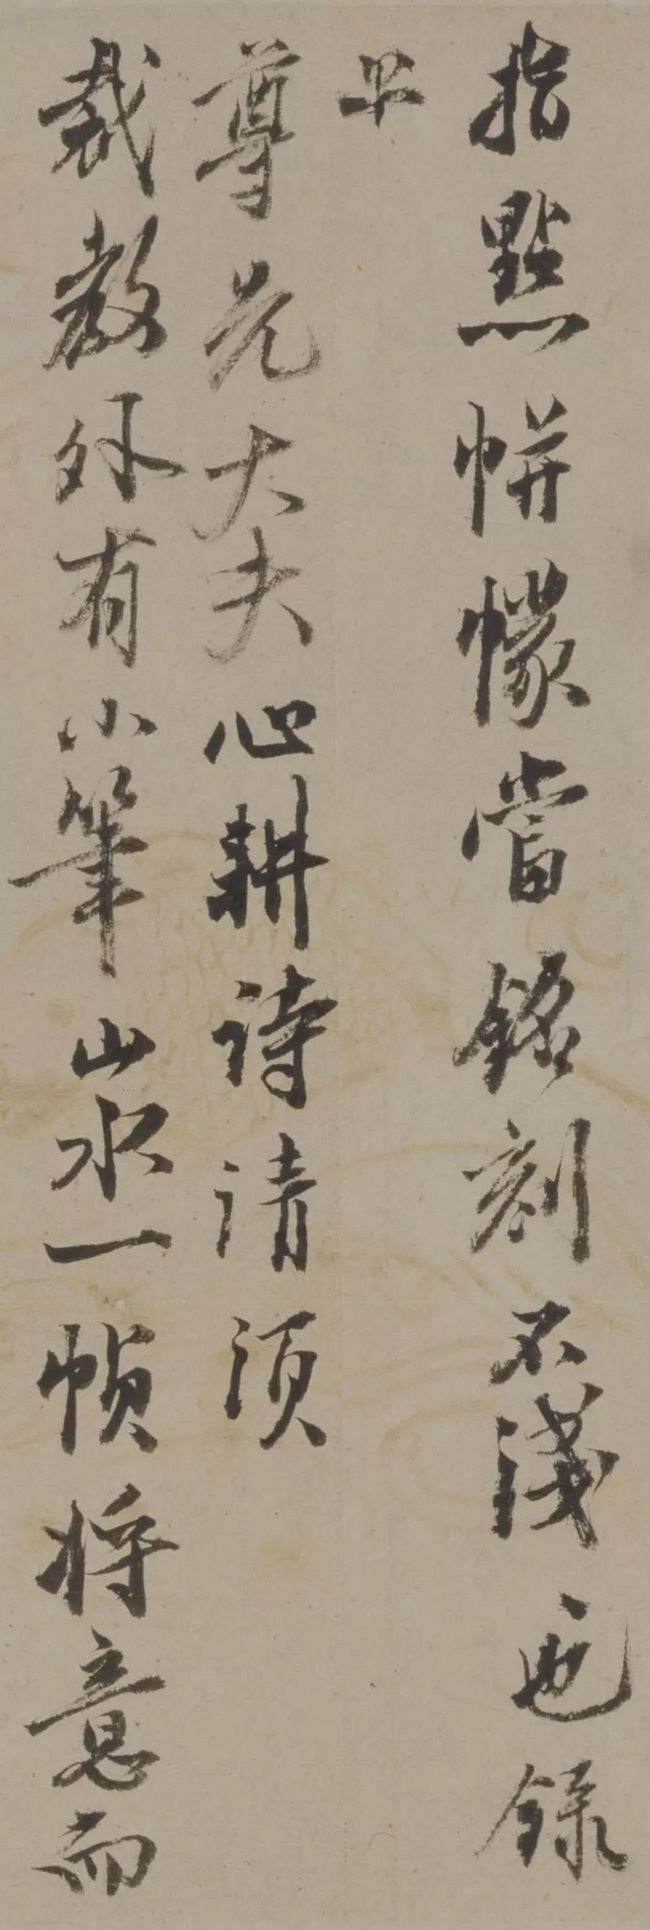 指點帡幪當銘刻不淺也録
呈
尊兄大夫心耕詩請須
裁教外有小筆山水一幀將意而